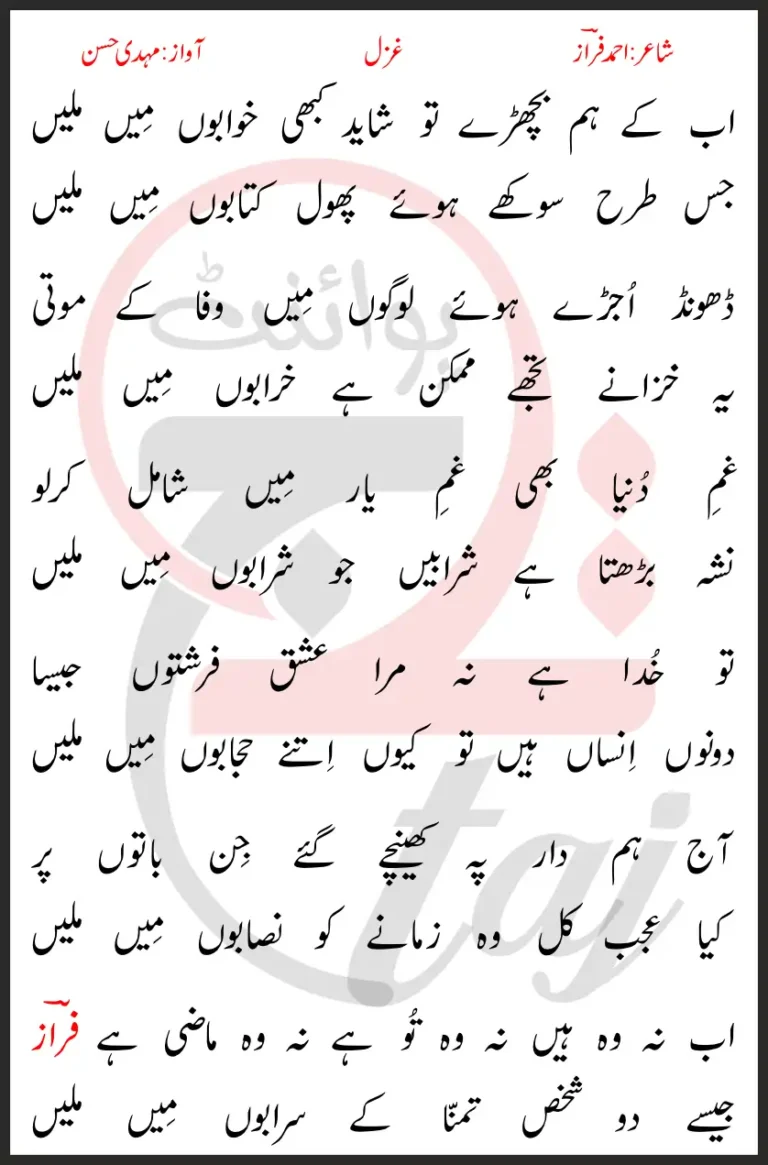 شاعر:احمد فرازؔ غزل آواز:مہدی حسن
اب کے ہم بچھڑے تو شاید کبھی خوابوں مِیں ملیں
جس طرح سوکھے ہوئے پھول کتابوں مِیں ملیں
ڈھونڈ اُجڑے ہوئے لوگوں مِیں وفا کے موتی
یہ خزانے تجھے ممکن ہے خرابوں مِیں ملیں
غمِ دُنیا بھی غمِ یار مِیں شامل کرلو
نشہ بڑھتا ہے شرابیں جو شرابوں مِیں ملیں
تو خُدا ہے نہ مرا عشق فرشتوں جیسا
دونوں اِنساں ہیں تو کیوں اِتنے حجابوں مِیں ملیں
آج ہم دار پہ کھینچے گئے جِن باتوں پر
کیا عجب کل وہ زمانے کو نصابوں مِیں ملیں
اب نہ وہ ہیں نہ وہ تُو ہے نہ وہ ماضی ہے فرازؔ
جیسے دو شخص تمنّا کے سرابوں مِیں ملیں
پوائنٹ
taj